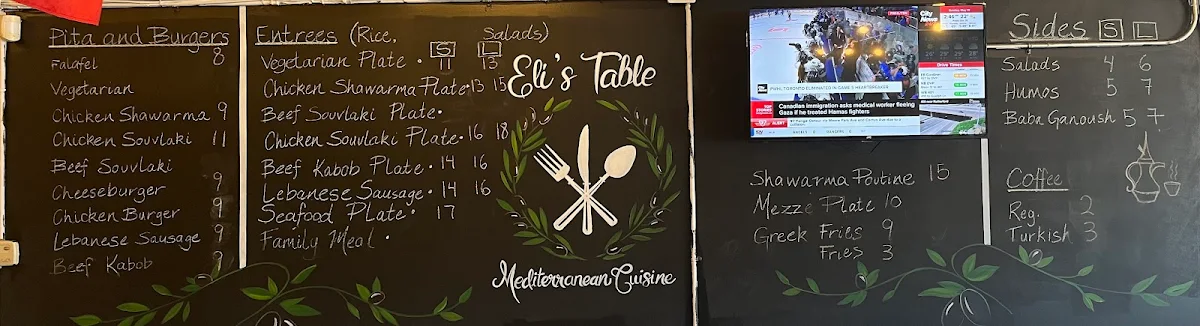 Pita and Burgers
Falafel 8
Vegetarian
Chicken Shawarma 9
Chicken Souvlaki 11
Beef Souvlaki
Cheeseburger 9
Chicken Burger 9
Lebanese Sausage 9
Beef Kabob 9
Entrees (Rice, Salads)
S L
Vegetarian Plate . 11 13
Chicken Shawarma Plate . 13 15
Beef Souvlaki Plate .
Chicken Souvlaki Plate . 16 18
Beef Kabob Plate . 14 16
Lebanese Sausage . 14 16
Seafood Plate . 17
Family Meal .
Eli's Table
Mediterranean Cuisine
City News
2:46 22°
Drive Times
PWHL TORONTO ELIMINATED IN GAME 5 HEARTBREAKER
Canadian immigration asks medical worker fleeing
Gaza if he treated Hamas fighters
ALERT
Shawarma Poutine 15
Mezze Plate 10
Greek Fries 9
Fries 3
Sides S L
Salads 4 6
Humos 5 7
Baba Ganoush 5 7
Coffee
Reg. 2
Turkish 3